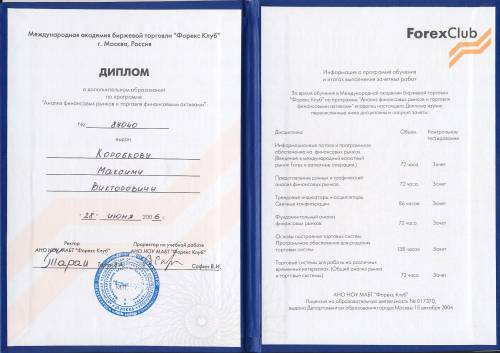 Международная академия биржевой торговли "Форекс Клуб"
г. Москва, Россия
ДИПЛОМ
о дополнительном образовании
по программе
"Анализ финансовых рынков и торговля финансовыми активами"
№ 84040
выдан
Коробкову
Максиму
Викторовичу
"28" июня 2006 г.
Ректор
АНО НОУ МАБТ "Форекс Клуб"
Таран
Проректор по учебной работе
АНО НОУ МАБТ "Форекс Клуб"
Сафин В.И.
ForexClub
Информация о программе обучения
и итогах выполнения зачетных работ
За время обучения в Международной академии биржевой торговли
"Форекс Клуб" по программе "Анализ финансовых рынков и торговля
финансовыми активами" владелец настоящего Диплома изучил
перечисленные ниже дисциплины и получил зачеты:
Дисциплина Объем Контрольное
тестирование
Информационные потоки и программное
обеспечение на финансовых рынках.
(Введение в международный валютный
рынок Forex и валютные операции.) 72 часа Зачет
Представление данных и графический
анализ финансовых рынков. 72 часа Зачет
Трендовые индикаторы и осцилляторы.
Свечные конфигурации. 86 часов Зачет
Фундаментальный анализ
финансовых рынков. 72 часа Зачет
Основы построения торговых систем.
Программное обеспечение для создания
торговых систем. 138 часов Зачет
Торговые системы для работы на различных
временных интервалах. (Общий анализ рынка
и торговые системы) 72 часа Зачет
АНО НОУ МАБТ "Форекс Клуб"
Лицензия на образовательную деятельность № 017370,
выдана Департаментом образования города Москвы 15 декабря 2004